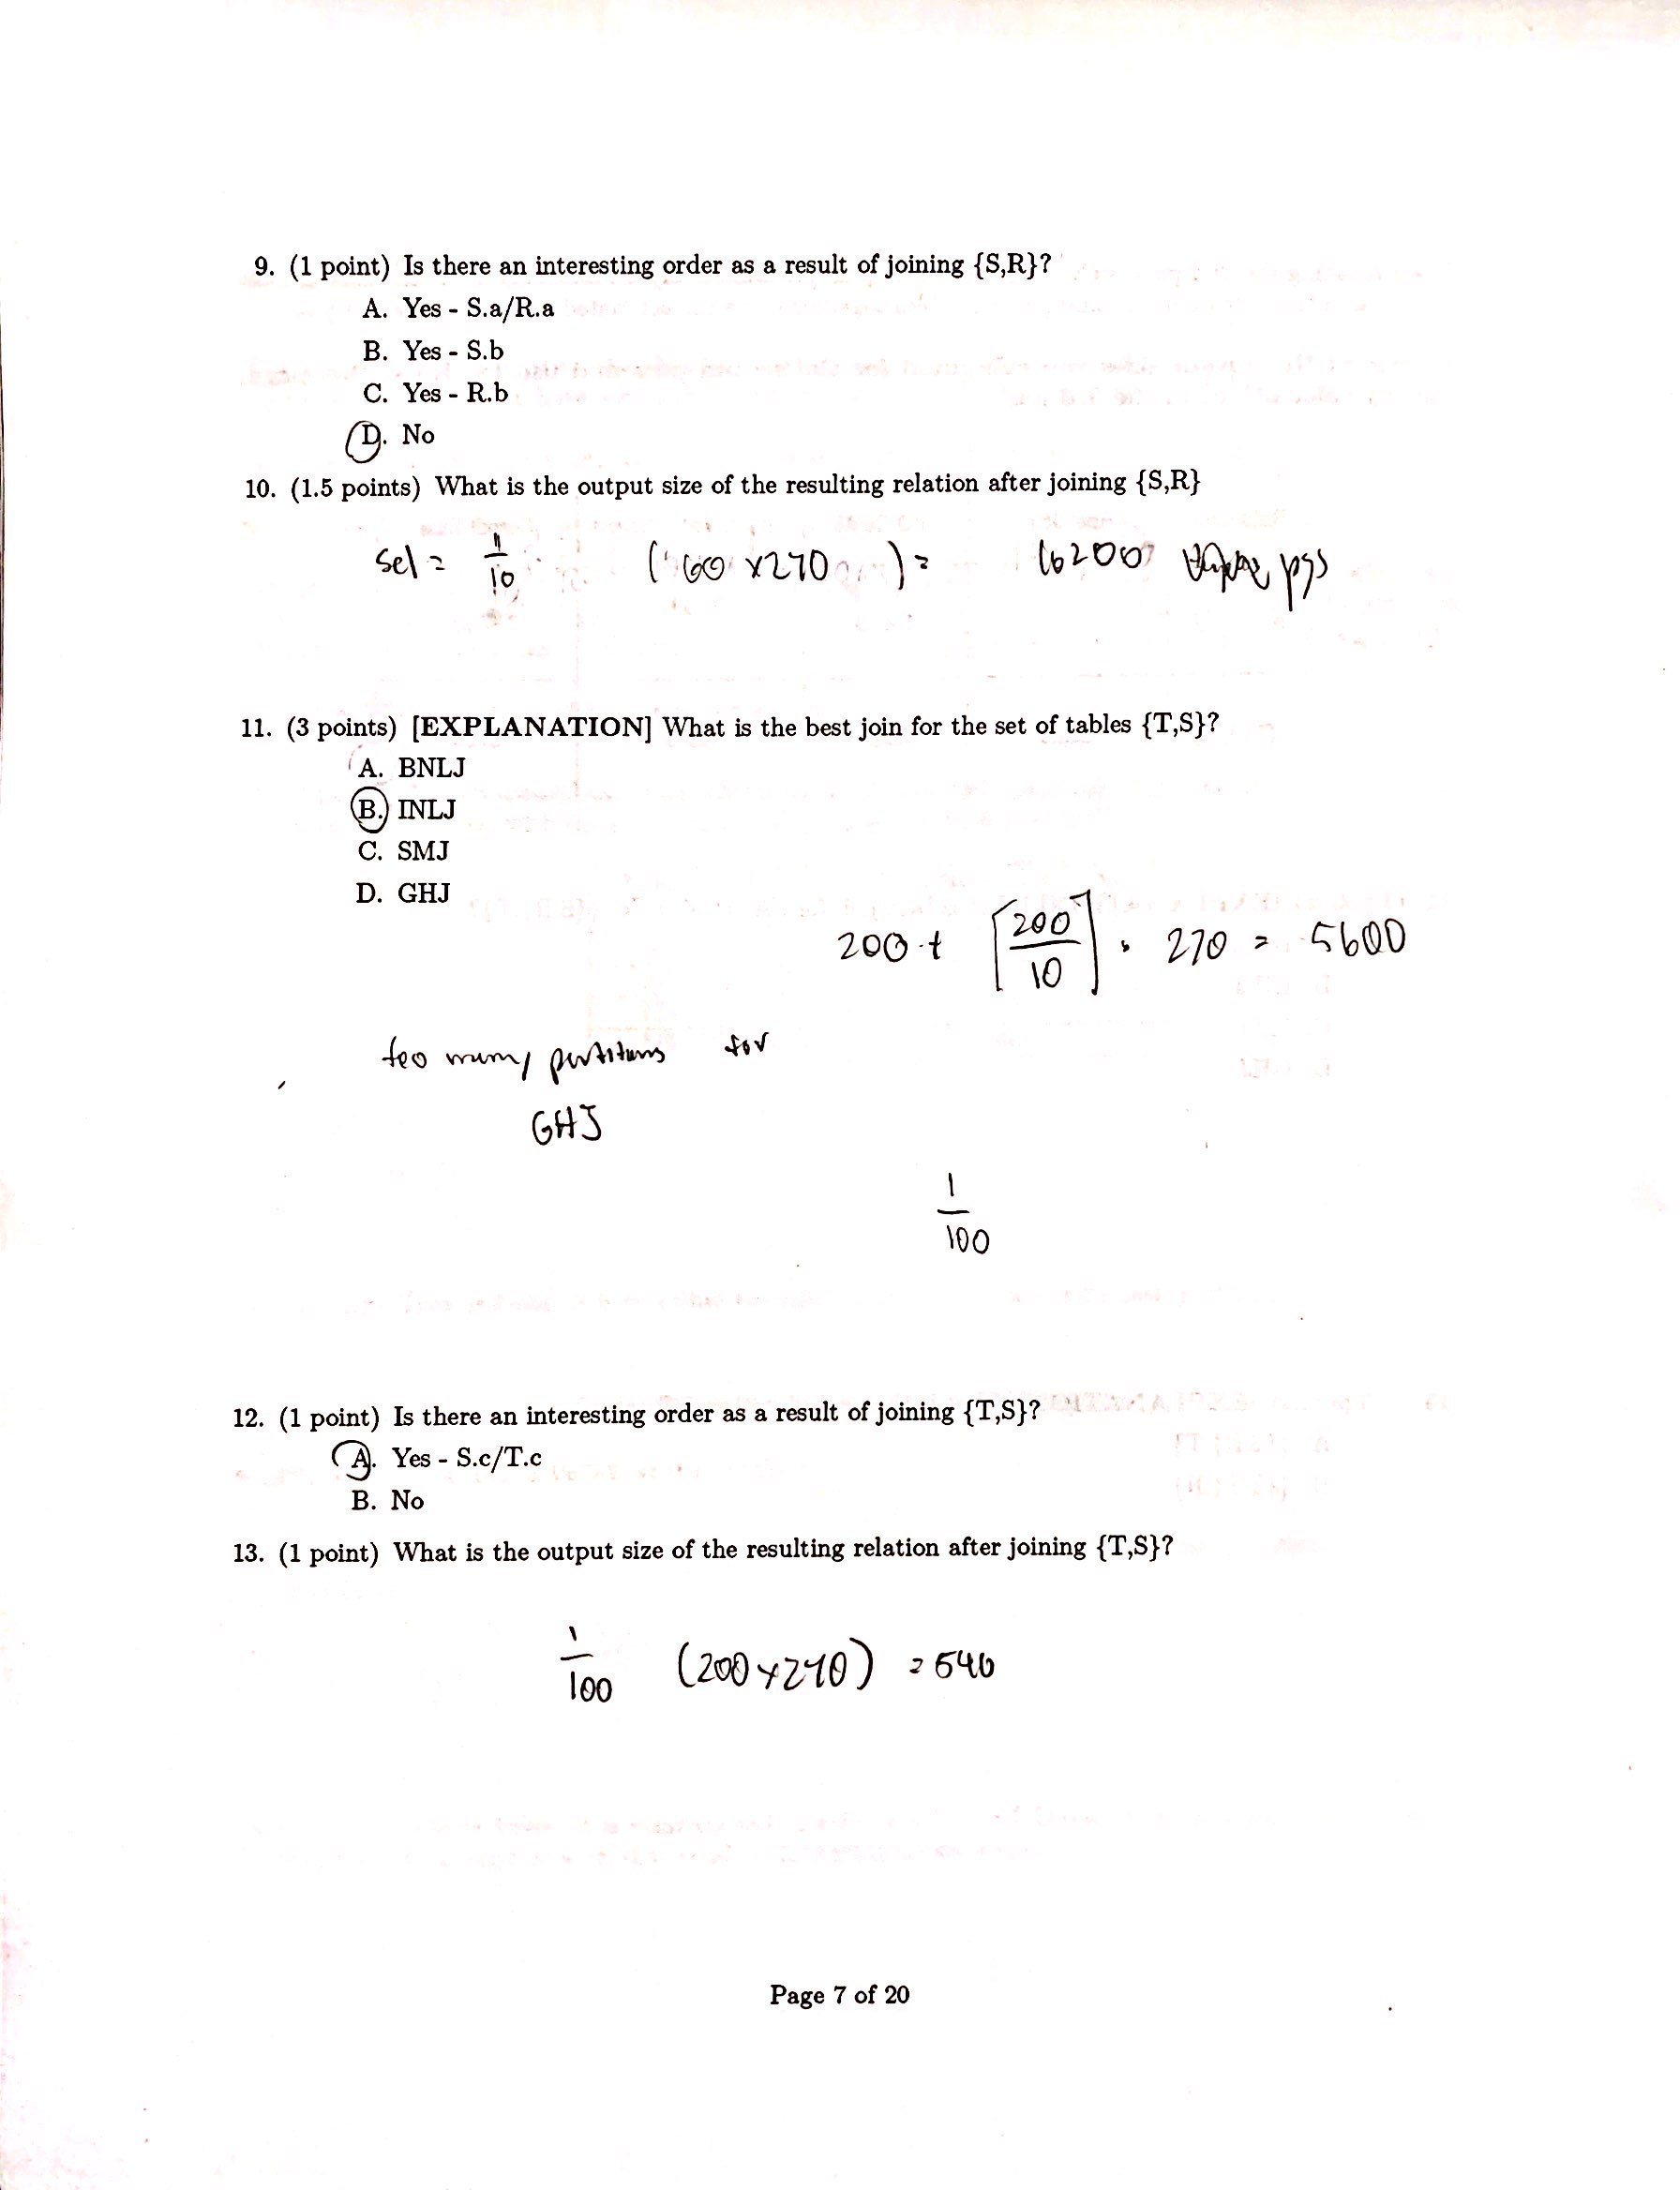 9. (1 point) Is there an interesting order as a result of joining {S,R}?
A. Yes - S.a/R.a
B. Yes - S.b
C. Yes - R.b
D. No
10. (1.5 points) What is the output size of the resulting relation after joining {S,R}
sel = 1/10 (60 x 270) = 16200 pgs
11. (3 points) [EXPLANATION] What is the best join for the set of tables {T,S}?
A. BNLJ
B. INLJ
C. SMJ
D. GHJ
200 + ⌈200/10⌉ · 270 = 5600
too many partitions for
GHJ
1/100
12. (1 point) Is there an interesting order as a result of joining {T,S}?
A. Yes - S.c/T.c
B. No
13. (1 point) What is the output size of the resulting relation after joining {T,S}?
1/100 (200 x 270) = 540
Page 7 of 20